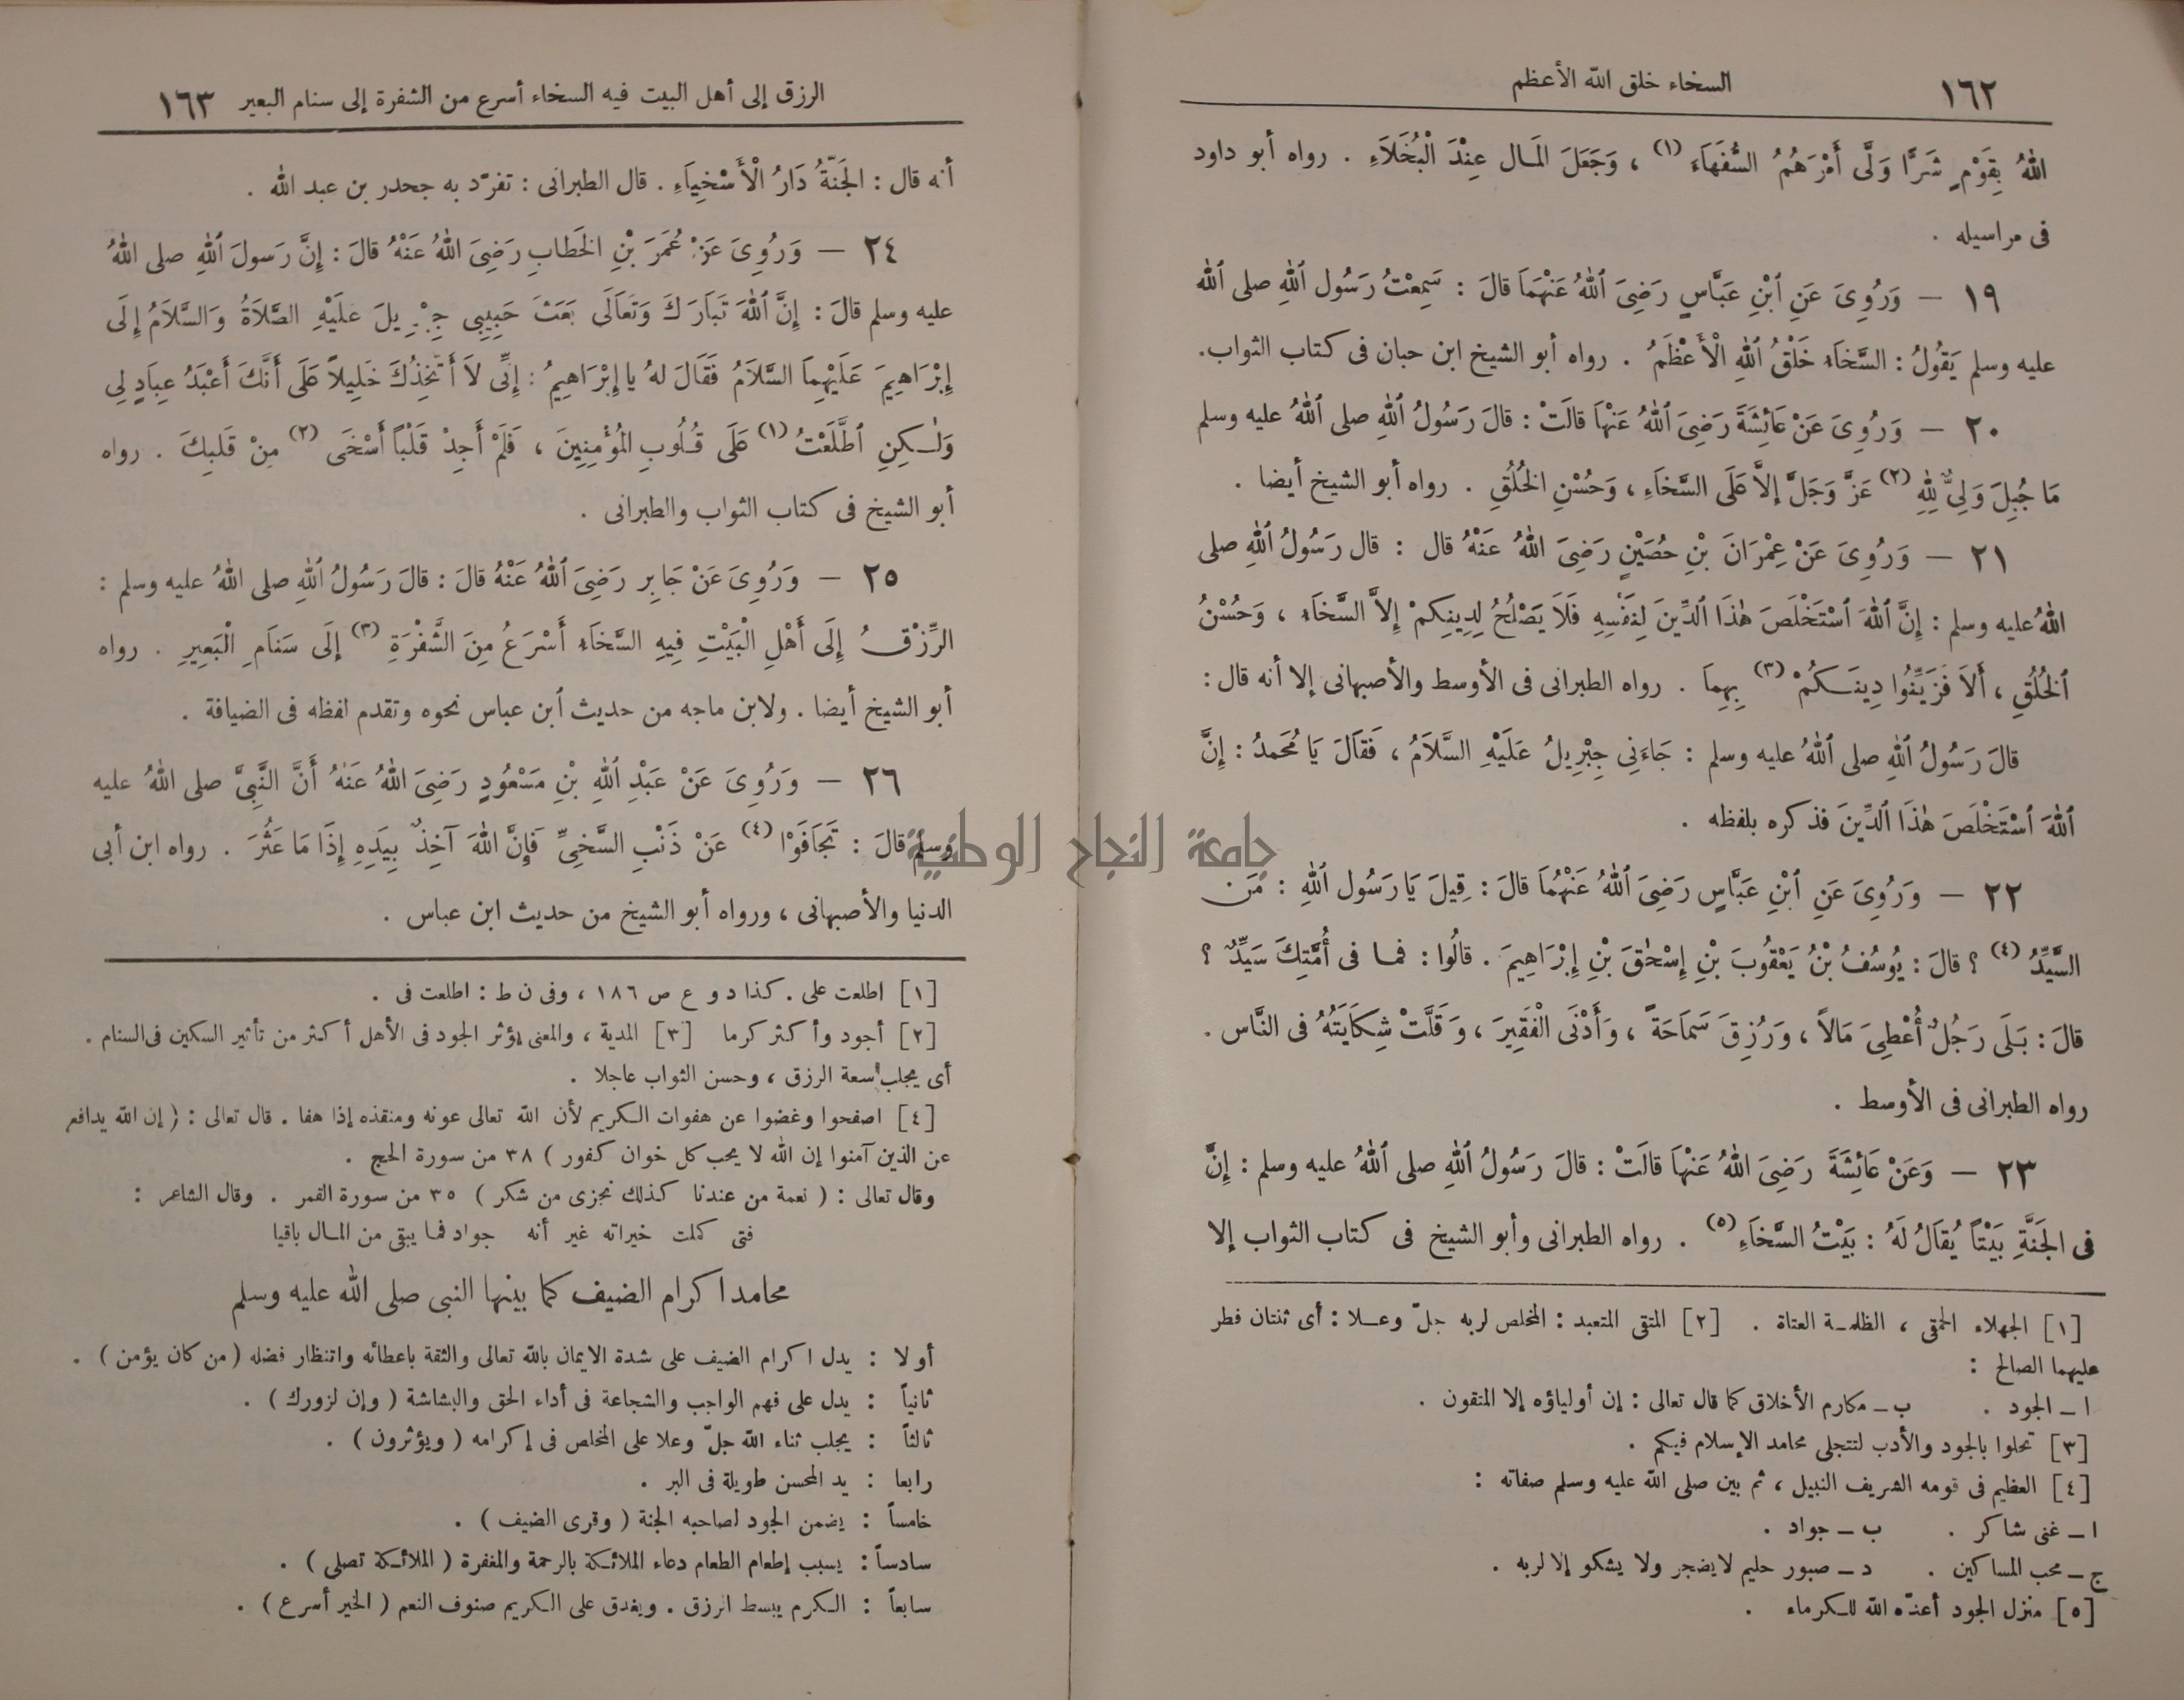 ١٦٢ السخاء خلق الله الأعظم
اللهُ بِقَوْمٍ شَرًّا وَلَّى أَمْرَهُمُ السُّفَهَاءَ (١) ، وَجَعَلَ المَال عِنْدَ الْبُخَلَاءِ . رواه أبو داود
فى مراسيله .
١٩ — وَرُوِىَ عَنِ ٱبْنِ عَبَّاسٍ رَضِىَ ٱللهُ عَنْهُمَا قالَ : سَمِعْتُ رَسُول ٱللهِ صلى ٱلله
عليه وسلم يَقُولُ : السَّخَاءُ خَلْقُ ٱللهِ الْأَعْظَمُ . رواه أبو الشيخ ابن حبان فى كتاب الثواب.
٢٠ — وَرُوِىَ عَنْ عَائِشَةَ رَضِىَ ٱللهُ عَنْهَا قالَتْ : قالَ رَسُولُ ٱللهِ صلى ٱللهُ عليه وسلم
مَا جُبِلَ وَلِىٌّ لِلهِ (٢) عَزَّ وَجَلَّ إلاَّ عَلَى السَّخَاءِ ، وَحُسْنِ الخُلُقِ . رواه أبو الشيخ أيضا .
٢١ — وَرُوِىَ عَنْ عِمْرَانَ بْنِ حُصَيْنٍ رَضِىَ اللهُ عَنْهُ قال : قال رَسُولُ ٱللهِ صلى
اللهُ عليه وسلم : إِنَّ ٱللهَ ٱسْتَخْلَصَ هٰذَا ٱلدِّينَ لِنَفْسِهِ فَلَا يَصْلُحُ لِدِينِكمْ إِلاَّ السَّخَاءُ ، وَحُسْنُ
ٱلخُلُقِ ، أَلَا فَزَيِّنُوا دِينَكُمْ (٣) بِهِمَا . رواه الطبرانى فى الأوسط والأصبهانى إلا أنه قال :
قالَ رَسُولُ ٱللهِ صلى ٱللهُ عليه وسلم : جَاءَنِى جِبْرِيلُ عَلَيْهِ السَّلَامُ ، فَقَالَ يَا مُحَمدُ : إِنَّ
ٱللهَ ٱسْتَخْلَصَ هٰذَا ٱلدِّينَ فذكره بلفظه .
٢٢ — وَرُوِىَ عَنِ ٱبْنِ عَبَّاسٍ رَضِىَ ٱللهُ عَنْهُمَا قالَ : قِيلَ يَا رَسُول ٱللهِ : مَن
السَّيِّدُ (٤) ؟ قالَ : يُوسُفُ بْنُ يَعْقُوبَ بْنِ إِسْحٰقَ بْنِ إِبْرَاهِيمَ . قالُوا : فما فى أُمَّتِكَ سَيِّدٌ ؟
قالَ : بَلَى رَجُلٌ أُعْطِىَ مَالاً ، وَرُزِقَ سَمَاحَةً ، وَأَدْنَى الْفَقِيرَ ، وَقَلَّتْ شِكَايَتُهُ فى النَّاس .
رواه الطبرانى فى الأوسط .
٢٣ — وَعَنْ عَائِشَةَ رَضِىَ اللهُ عَنْهَا قالَتْ : قالَ رَسُولُ ٱللهِ صلى ٱللهُ عليه وسلم : إِنَّ
فى الجَنَّةِ بَيْتًا يُقَالُ لَهُ : بَيْتُ السَّخَاءِ (٥) . رواه الطبرانى وأبو الشيخ فى كتاب الثواب إلا
[١] الجهلاء الحمقى ، الظلمة العتاة . [٢] المتقى المتعبد : المخلص لربه جلّ وعلا : أى ثنتان فطر
عليهما الصالح :
ا ـ الجود . ب ـ مكارم الأخلاق كما قال تعالى : إن أولياؤه إلا المتقون .
[٣] تحلوا بالجود والأدب لتتجلى محامد الإسلام فيكم .
[٤] العظيم فى قومه الشريف النبيل ، ثم بين صلى الله عليه وسلم صفاته :
ا ـ غنى شاكر . ب ـ جواد .
ج ـ محب المساكين . د ـ صبور حليم لايضجر ولا يشكو إلا لربه .
[٥] منزل الجود أعدّه الله للكرماء .
الرزق إلى أهل البيت فيه السخاء أسرع من الشفرة إلى سنام البعير ١٦٣
أنه قال : الجَنّةُ دَارُ الْأَسْخِيَاءِ . قال الطبرانى : تفرّد به جحدر بن عبد الله .
٢٤ — وَرُوِىَ عَنْ عُمَرَ بْنِ الخَطابِ رَضِىَ اللهُ عَنْهُ قالَ : إِنَّ رَسولَ ٱللهِ صلى اللهُ
عليه وسلم قالَ : إِنَّ ٱللهَ تَبَارَكَ وَتَعَالَى بَعَثَ حَبِيبِى جِبْرِيلَ عَلَيْهِ الصَّلَاةُ وَالسَّلَامُ إِلَى
إِبْرَاهِيمَ عَلَيْهِمَا السَّلَامُ فَقَالَ لهُ يا إِبْرَاهِيمُ : إِنِّى لَا أَتَّخِذُكَ خَلِيلاً عَلَى أَنَّكَ أَعْبَدُ عِبَادٍ لِى
وَلٰكِنِ ٱطَّلَعْتُ (١) عَلَى قُلُوبِ المُؤْمِنِينَ ، فَلَمْ أَجِدْ قَلْبًا أَسْخَى (٢) مِنْ قَلبِكَ . رواه
أبو الشيخ فى كتاب الثواب والطبرانى .
٢٥ — وَرُوِىَ عَنْ جَابِرٍ رَضِىَ ٱللهُ عَنْهُ قالَ : قالَ رَسُولُ ٱللهِ صلى اللهُ عليه وسلم :
الرِّزْقُ إِلَى أَهْلِ الْبَيْتِ فِيهِ السَّخَاءُ أَسْرَعُ مِنَ الشَّفْرَةِ (٣) إِلَى سَنَامِ الْبَعِيرِ . رواه
أبو الشيخ أيضا . ولابن ماجه من حديث ٱبن عباس نحوه وتقدم لفظه فى الضيافة .
٢٦ — وَرُوِىَ عَنْ عَبْدِ ٱللهِ بْنِ مَسْعُودٍ رَضِىَ اللهُ عَنهُ أَنَّ النَّبِىَّ صلى اللهُ عليه
وسلم قالَ : تَجَافَوْا (٤) عَنْ ذَنْبِ السَّخِىِّ فَإِنَّ اللهَ آخِذٌ بِيَدِهِ إِذَا مَا عَثُرَ . رواه ابن أبى
الدنيا والأصبهانى ، ورواه أبو الشيخ من حديث ابن عباس .
[١] اطلعت على . كذا د و ع ص ١٨٦ ، وفى ن ط : اطلعت فى .
[٢] أجود وأكثر كرما [٣] المدية ، والمعنى يؤثر الجود فى الأهل أكثر من تأثير السكين فى السنام .
أى يجلب سعة الرزق ، وحسن الثواب عاجلا .
[٤] اصفحوا وغضوا عن هفوات الكريم لأن الله تعالى عونه ومنقذه إذا هفا . قال تعالى : ( إن الله يدافع
عن الذين آمنوا إن الله لا يحب كل خوان كفور ) ٣٨ من سورة الحج .
وقال تعالى : ( نعمة من عندنا كذلك نجزى من شكر ) ٣٥ من سورة القمر . وقال الشاعر :
فتى كملت خيراته غير أنه جواد فما يبقى من المال باقيا
محامد اكرام الضيف كما بينها النبى صلى الله عليه وسلم
أولا : يدل اكرام الضيف على شدة الايمان بالله تعالى والثقة باعطائه وانتظار فضله ( من كان يؤمن ) .
ثانياً : يدل على فهم الواجب والشجاعة فى أداء الحق والبشاشة ( وإن لزورك ) .
ثالثاً : يجلب ثناء الله جلّ وعلا على المخلص فى إكرامه ( ويؤثرون ) .
رابعا : يد المحسن طويلة فى البر .
خامساً : يضمن الجود لصاحبه الجنة ( وقرى الضيف ) .
سادساً : يسبب إطعام الطعام دعاء الملائكة بالرحمة والمغفرة ( الملائكة تصلى ) .
سابعاً : الكرم يبسط الرزق . ويغدق على الكريم صنوف النعم ( الخير أسرع ) .
جامعة النجاح الوطنية